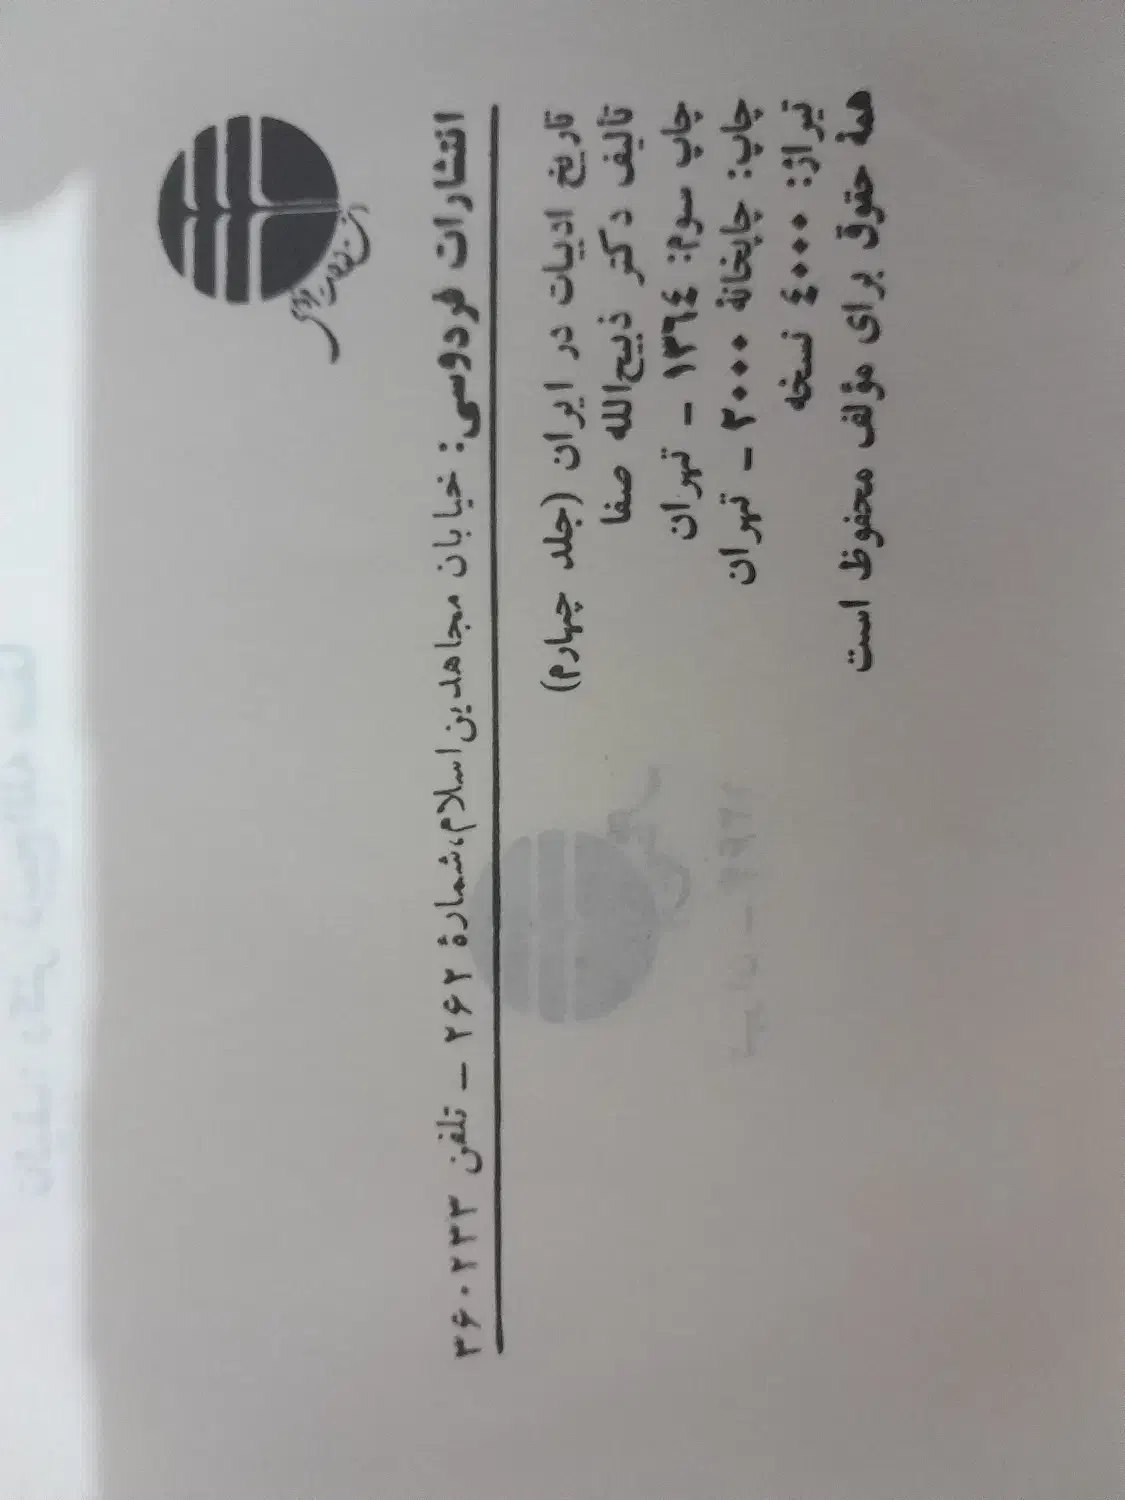 انتشارات فردوسی: خیابان مجاهدین اسلام، شمارهٔ ۲۶۲ - تلفن ۳۶۰۲۳۳
تاریخ ادبیات در ایران (جلد چهارم)
تألیف دکتر ذبیح‌الله صفا
چاپ سوم: ۱۳۶۴ - تهران
چاپ: چاپخانهٔ ۲۰۰۰ - تهران
تیراژ: ۴۰۰۰ نسخه
همهٔ حقوق برای مؤلف محفوظ است